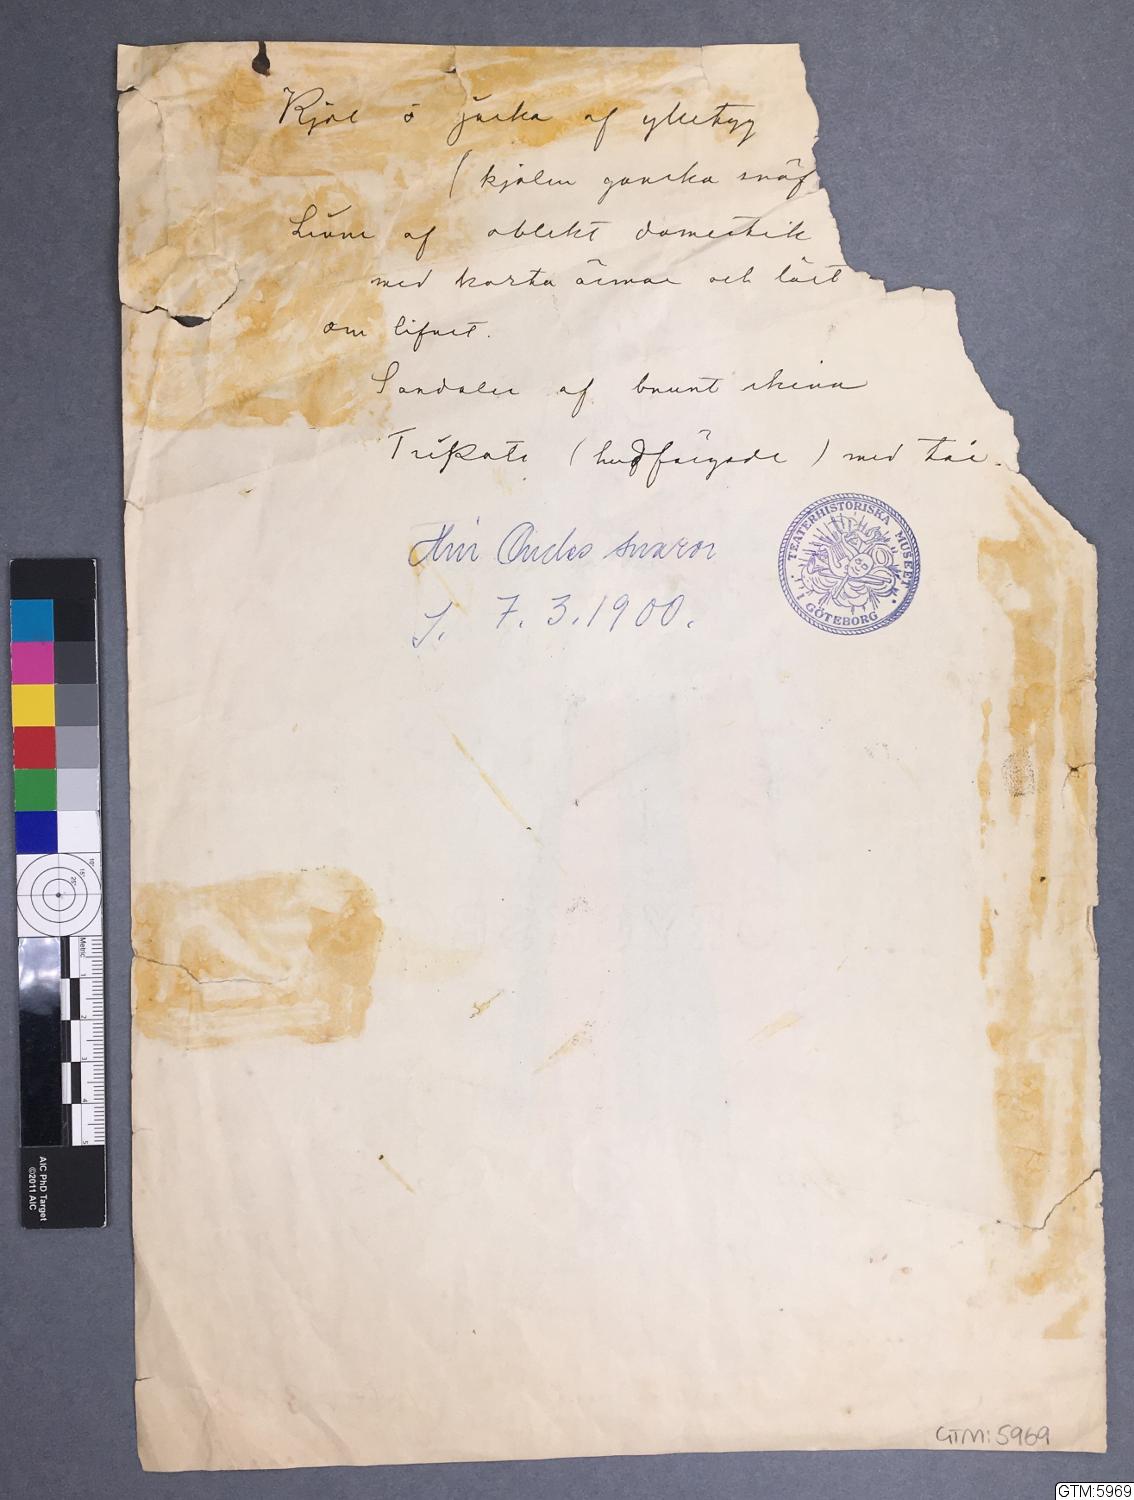 Kjol o jacka af ylletyg
(kjolen ganska snäf
Linne af oblekt domestik
med korta ärmar och löst
om lifvet.
Sandaler af brunt skinn
Trikots (hudfärgade) med tår.
Hin Ondes snaror
S. 7.3.1900.
TEATERHISTORISKA MUSEET
I GÖTEBORG
GTM:5969
AIC PhD Target
©2011 AIC
Metric
GTM:5969